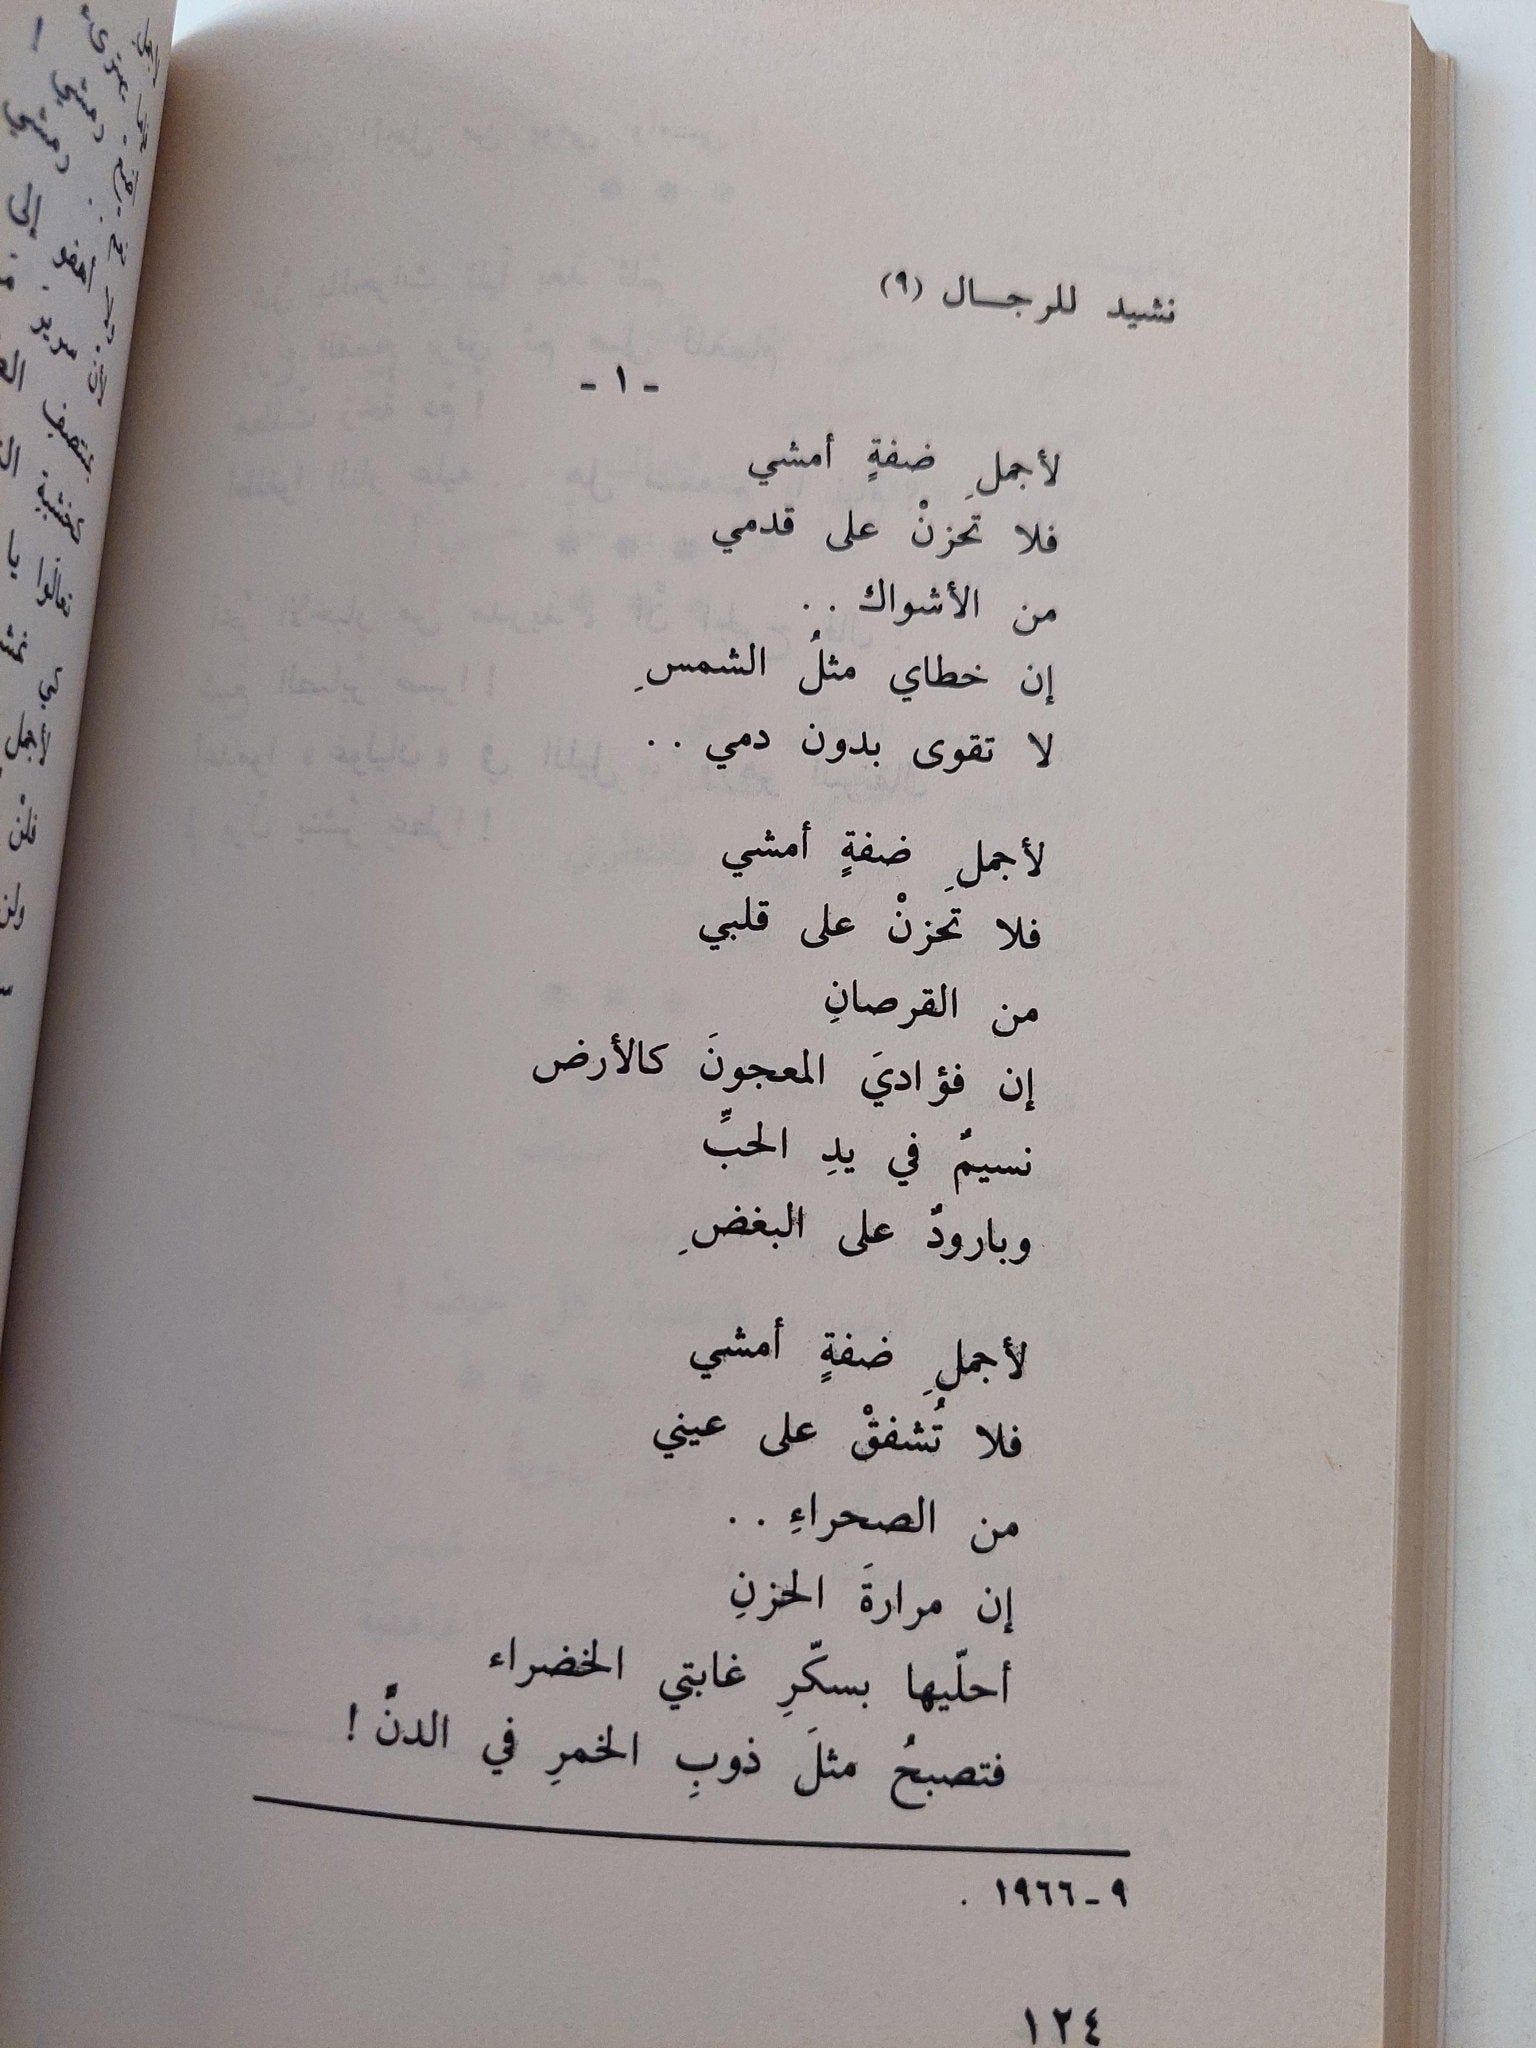 نشيد للرجال (٩)
- ١ -
لأجملِ ضفةٍ أمشي
فلا تحزنْ على قدمي
من الأشواك . .
إن خطاي مثلُ الشمسِ
لا تقوى بدون دمي . .
لأجملِ ضفةٍ أمشي
فلا تحزنْ على قلبي
من القرصانِ
إن فؤاديَ المعجونَ كالأرض
نسيمٌ في يدِ الحبِّ
وبارودٌ على البغضِ
لأجملِ ضفةٍ أمشي
فلا تُشفقْ على عيني
من الصحراءِ . .
إن مرارةَ الحزنِ
أحلّيها بسكّرِ غابتي الخضراء
فتصبحُ مثلَ ذوبِ الخمرِ في الدنِّ !
٩ - ١٩٦٦ .
١٢٤